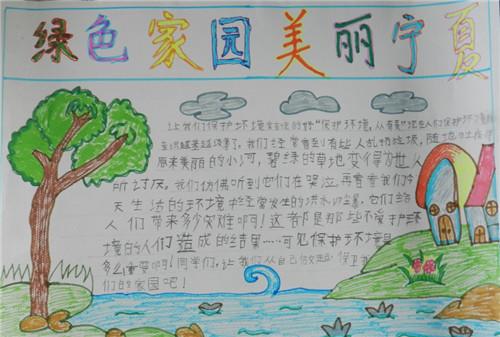 绿色家园美丽宁夏
让我们保护环境 "保护环境,从有"
我们经常看到有些人乱扔垃圾,随地吐痰
原来美丽的小河,碧绿的草地变得为世人
所讨厌。我们仿佛听到它们在哭泣再看看我们今
天生活的环境 经常发生的洪水 它们给
人们带来多少灾难啊!这都是那些不爱护环
境的人们造成的结果……可见保护环境是
多么重要啊!同学们,让我们从自己做起 保卫
们的家园吧!